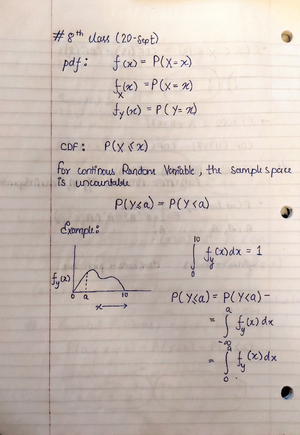 # 8th class (20-Sept)
pdf: f(x) = P(X=x)
f_X(x) = P(X=x)
f_y(x) = P(Y=x)
CDF: P(X≤x)
For continous Random Variable, the sample space
is uncountable
P(Y≤a) = P(Y<a)
Example:
∫_0^10 f_y(x)dx = 1
f_y(x)
0 a 10
x →
P(Y≤a) = P(Y<a) -
= ∫_{-∞}^a f_y(x)dx
= ∫_0^a f_y(x)dx